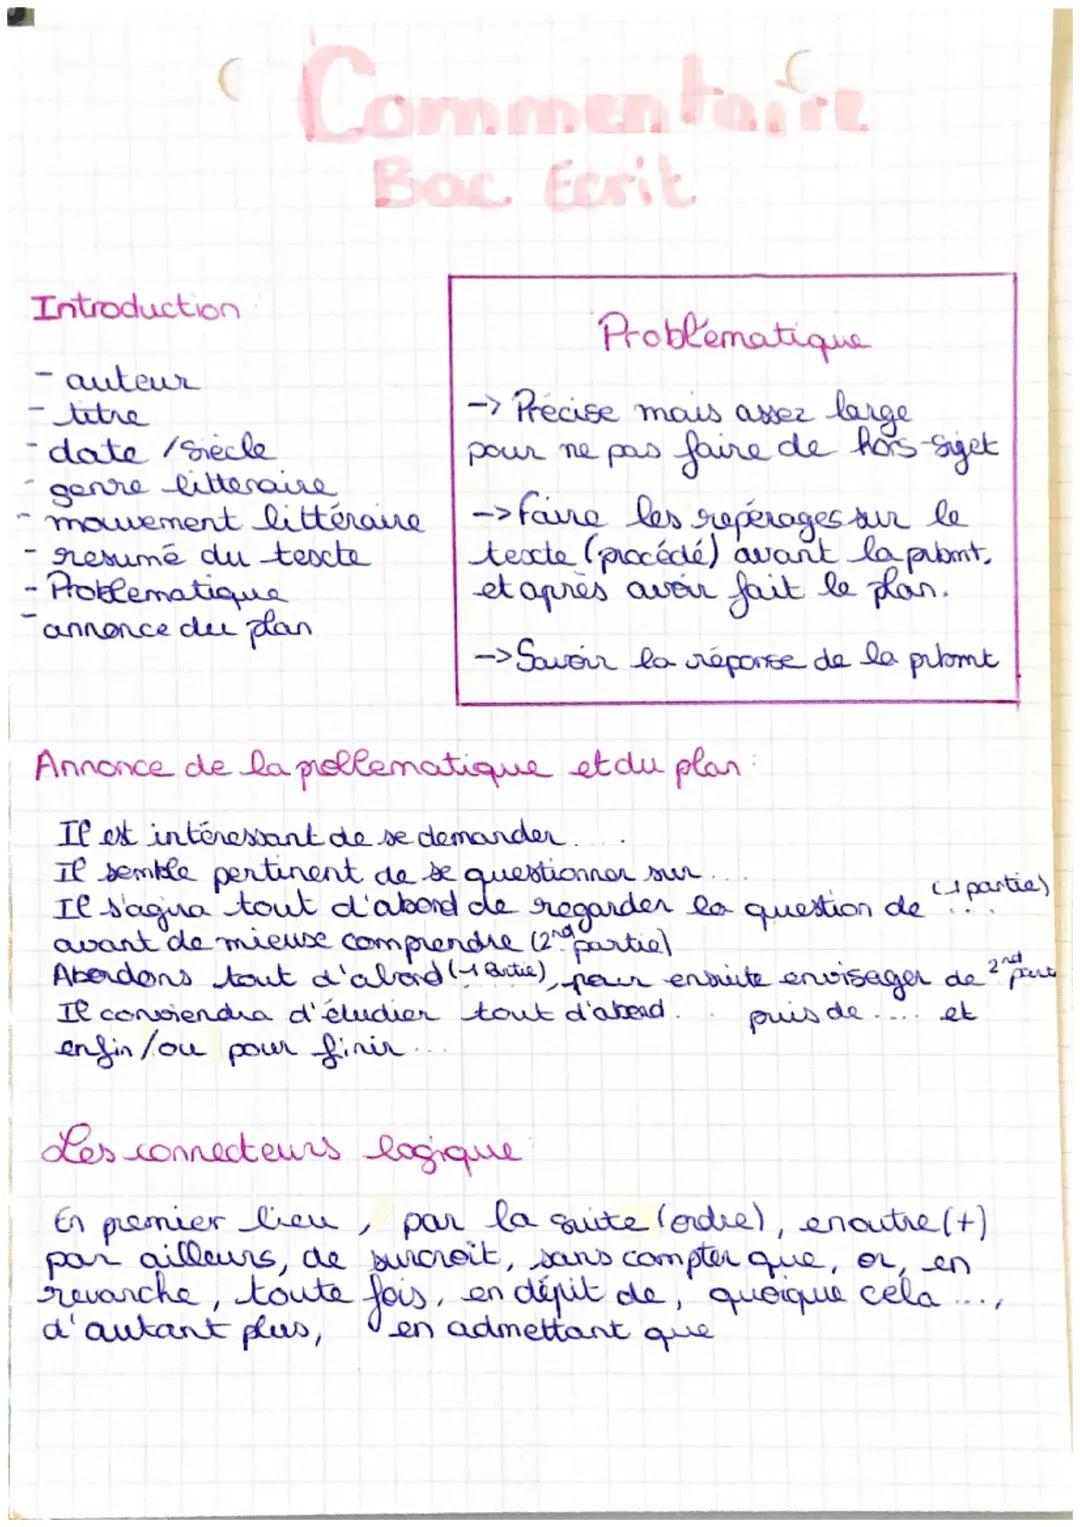 Commentaire
Bac Ecrit
Introduction :
- auteur
- titre
- date / siècle
- genre litteraire
- mouvement littéraire
- resumé du texte
- Problematique
- annonce du plan
Problématique
-> Précise mais assez large
pour ne pas faire de hors-sujet
-> Faire les repérages sur le
texte (procédé) avant la pbmt,
et après avoir fait le plan.
-> Savoir la réponse de la pbmt
Annonce de la problematique et du plan :
Il est intéressant de se demander ....
Il semble pertinent de se questionner sur ...
Il s'agira tout d'abord de regarder la question de ... (1 partie)
avant de mieux comprendre (2nd partie)
Abordons tout d'abord (1 Partie), pour ensuite envisager de 2nd part
Il conviendra d'étudier tout d'abord ... puis de .... et
enfin / ou pour finir ...
Les connecteurs logique :
En premier lieu, par la suite (ordre), enoutre (+)
par ailleurs, de surcroît, sans compter que, or, en
revanche, toute fois, en dépit de, quoique cela ...,
d'autant plus, en admettant que